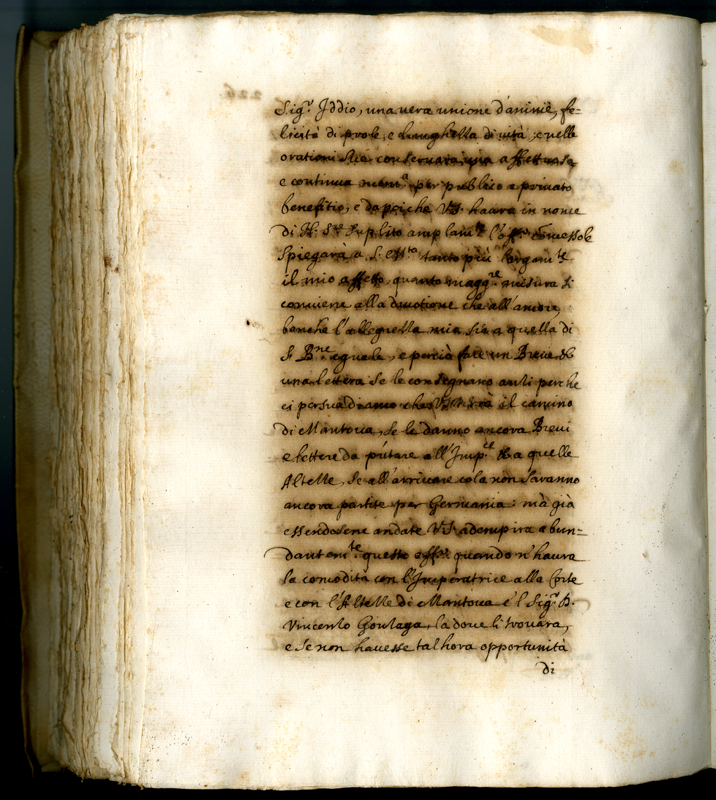 Sig.r Iddio, una vera unione d'animi, fe=
licità di prole, e lunghezza di vita; e nelle
orationi sue conservata una affettuosa
e continua mem.a per publico e privato
benefitio, e da poiche V.S. havra in nome
di N. S.re supplito amplam.te l'off.o
Spiegarà a S. tanto più largam.te
il mio affetto, quanto magg.re misura si
conviene alla divotione che all'amore,
benche l'allegrezza mia sia a quella di
S. B.ne eguale, e perciò fare un Breve &
una lettera se le consegnano anti perche
ci persuadiamo che V.S. il camino
di Mantova, se le danno ancora Brevi
e lettere da p'ntare all'Imp.ce & a quelle
Altezze, se all'arrivare cola non saranno
ancora partite per Germania; mà già
essendosene andate V.S. adempira abun=
dantem.te questo off.o quando n'havra
la comodità con l'Imperatrice alla Corte
e con l'Altezze di Mantova e'l Sig.r D.
Vincenzo Gonzaga, la dove li trovara,
e se non havesse talhora opportunità
di